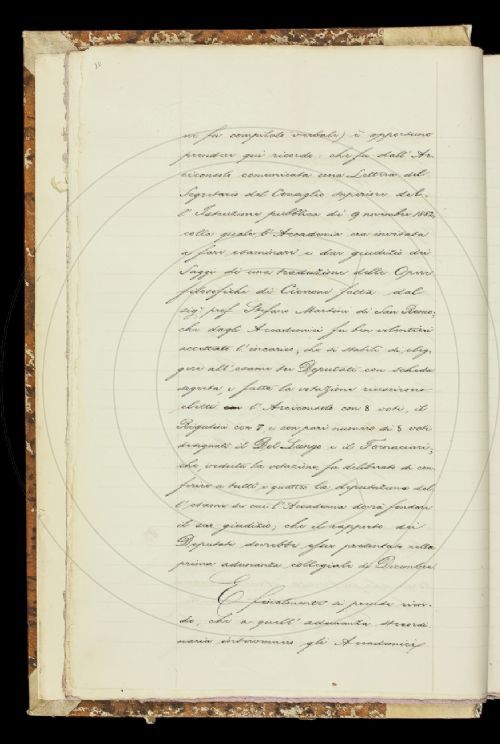 ne fu compilato verbale) è opportuno
prender qui ricordo: che fu dall' Ar-
ciconsolo comunicata una Lettera del
Segretario del Consiglio superiore del-
l' Istruzione pubblica di 9 novembre 1882,
colla quale l' Accademia era invitata
a fare esaminare e dar giudizio dei
Saggi di una traduzione delle Opere
filosofiche di Cicerone fatta dal
sig.r prof. Stefano Martini di San Remo;
che dagli Accademici fu ben volentieri
accettato l' incarico; che si stabilì di eleg-
gere all' esame tre Deputati con scheda
segreta, e fatta la votazione riuscirono
eletti l' Arciconsolo con 8 voti, il
Rigutini con 7, e con pari numero di 5 voti
designati il Del Lungo e il Fornaciari;
che veduta la votazione fu deliberato di con-
ferire a tutti e quattro la deputazione del-
l' esame su cui l' Accademia dovrà fondare
il suo giudizio; che il rapporto dei
Deputati dovrebbe esser presentato nella
prima adunanza collegiale di Decembre.
E finalmente si prende ricor-
do, che a quell' adunanza straordi
naria intervennero gli Accademici